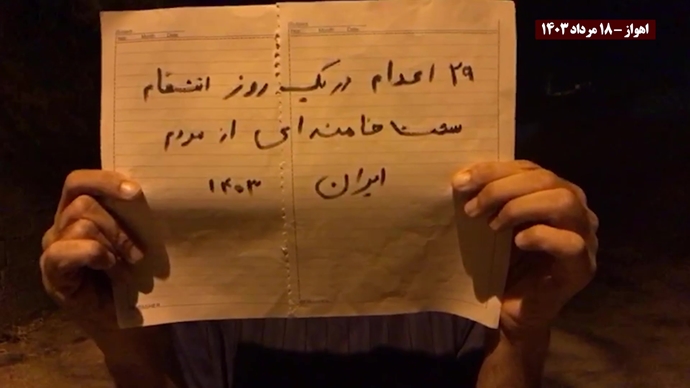 اهواز - ۱۸ مرداد ۱۴۰۳
Month Date
۲۹ اعدام در یک روز انتقام
سخت خامنه ای از مردم
ایران ۱۴۰۳